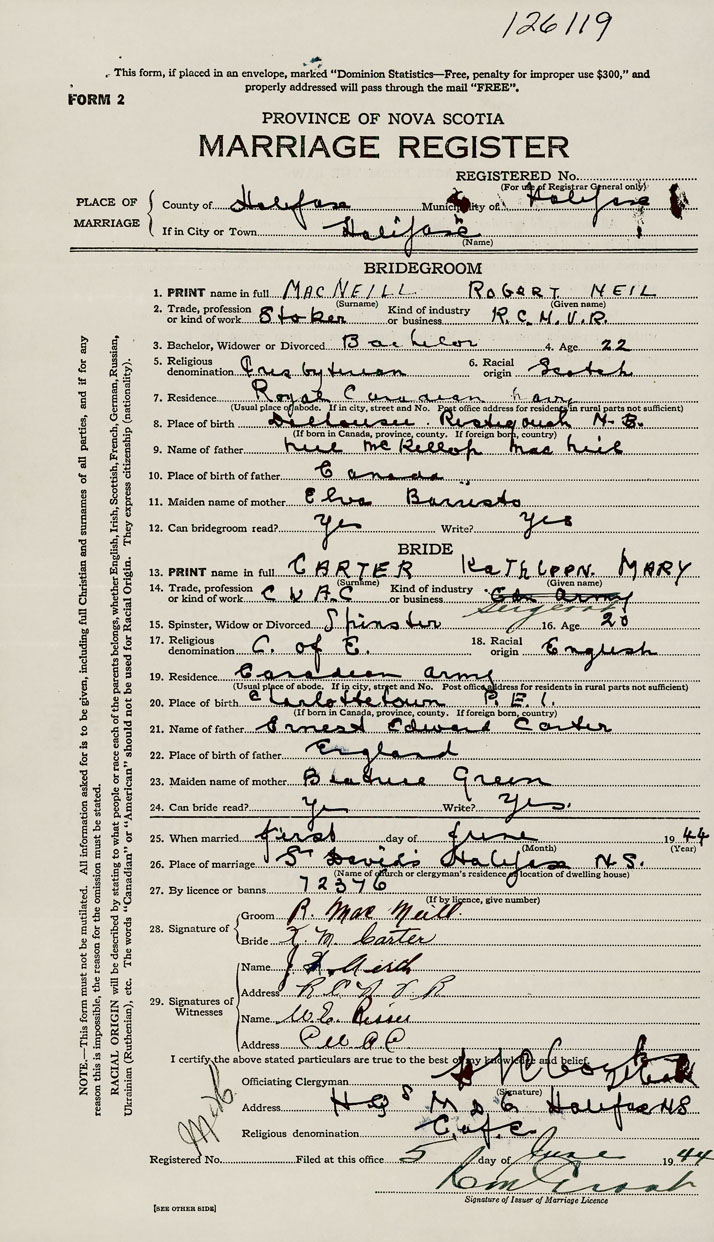 126119
This form, if placed in an envelope, marked "Dominion Statistics—Free, penalty for improper use $300," and
properly addressed will pass through the mail "FREE".
FORM 2
PROVINCE OF NOVA SCOTIA
MARRIAGE REGISTER
REGISTERED No.
(For use of Registrar General only)
PLACE OF MARRIAGE
County of Halifax Municipality of Halifax
If in City or Town Halifax
(Name)
BRIDEGROOM
1. PRINT name in full MACNEILL ROBERT NEIL
(Surname) (Given name)
2. Trade, profession or kind of work Stoker Kind of industry or business R.C.N.V.R.
3. Bachelor, Widower or Divorced Bachelor 4. Age 22
5. Religious denomination Presbyterian 6. Racial origin Scotch
7. Residence Royal Canadian Navy
(Usual place of abode. If in city, street and No. Post office address for residents in rural parts not sufficient)
8. Place of birth Dalhousie Restigouch N.B.
(If born in Canada, province, county. If foreign born, country)
9. Name of father Neil McKellop Mac Neil
10. Place of birth of father Canada
11. Maiden name of mother Elva
12. Can bridegroom read? Yes Write? Yes
BRIDE
13. PRINT name in full CARTER KATHLEEN MARY
(Surname) (Given name)
14. Trade, profession or kind of work C W A C Kind of industry or business Army
15. Spinster, Widow or Divorced Spinster 16. Age 20
17. Religious denomination C. of E. 18. Racial origin English
19. Residence Canadian Army
(Usual place of abode. If in city, street and No. Post office address for residents in rural parts not sufficient)
20. Place of birth Charlottetown P.E.I.
(If born in Canada, province, county. If foreign born, country)
21. Name of father Ernest Edward Carter
22. Place of birth of father England
23. Maiden name of mother Green
24. Can bride read? Yes Write? Yes.
25. When married first day of June 1944
(Month) (Year)
26. Place of marriage St David's Halifax N.S.
(Name of church or clergyman's residence or location of dwelling house)
27. By licence or banns 72376
(If by licence, give number)
28. Signature of
Groom R. Mac Neill
Bride K M. Carter
29. Signatures of Witnesses
Name
Address R C N V R
Name W.E.
Address C W A C
I certify the above stated particulars are true to the best of my knowledge and belief.
Officiating Clergyman
(Signature)
Address HQs M D 6 Halifax NS
Religious denomination C. of E.
Registered No. Filed at this office 5 day of June 1944
Signature of Issuer of Marriage Licence
[SEE OTHER SIDE]
NOTE.—This form must not be mutilated. All information asked for is to be given, including full Christian and surnames of all parties, and if for any
reason this is impossible, the reason for the omission must be stated.
RACIAL ORIGIN will be described by stating to what people or race each of the parents belongs, whether English, Irish, Scottish, French, German, Russian,
Ukrainian (Ruthenian), etc. The words "Canadian" or "American" should not be used for Racial Origin. They express citizenship (nationality).